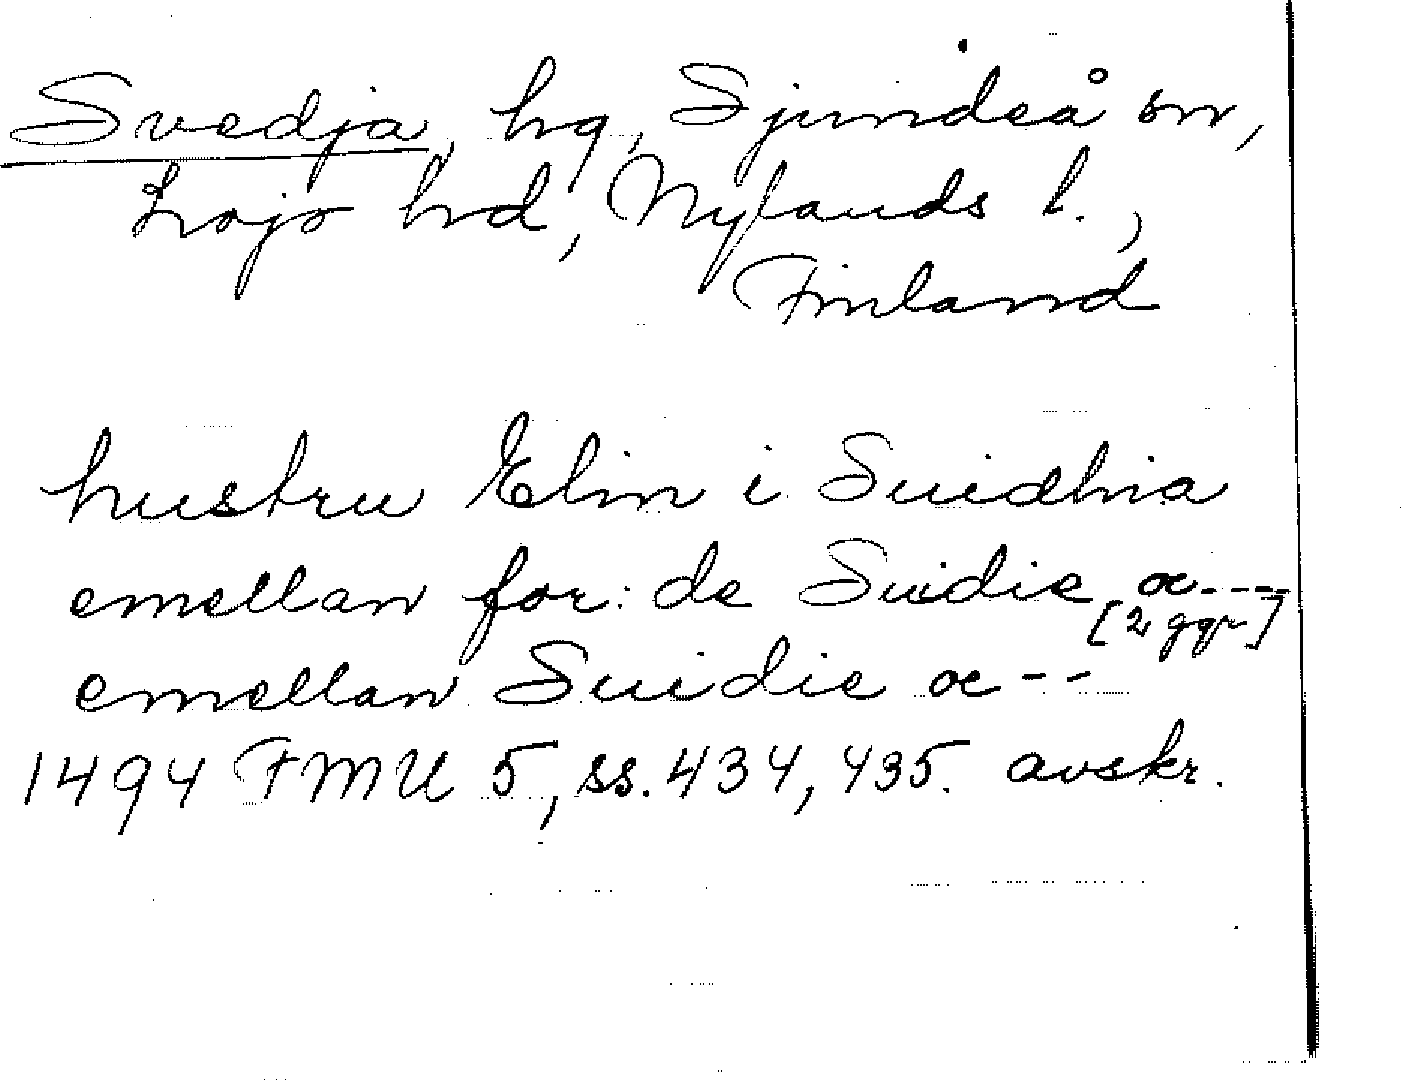 Svedja, hg, Sjundeå sn,
Lojo hrd, Nylands l.,
Finland
hustru Elin i Suidhia
emellan for: de Suidie oc ---
[2 ggr]
emellan Suidie oc --
1494 FMU 5, ss. 434, 435. avskr.